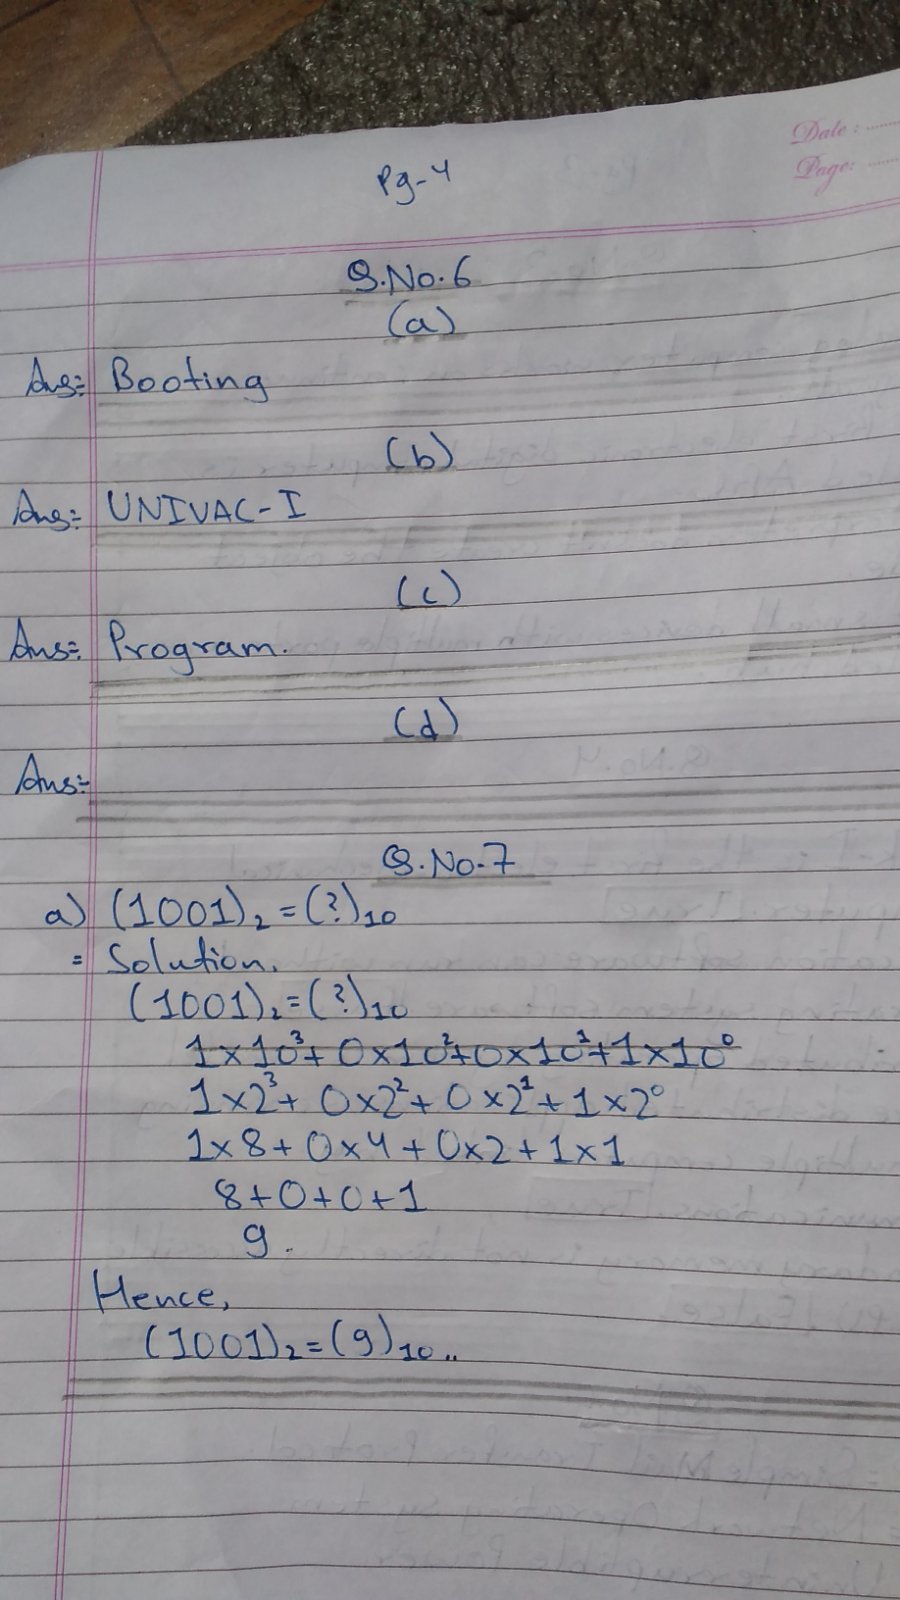 Date:
Page:
Pg-4
Q.No.6
(a)
Ans= Booting
(b)
Ans= UNIVAC-I
(c)
Ans= Program.
(d)
Ans=
Q.No.7
a) (1001)₂ = (?)₁₀
= Solution,
(1001)₂ = (?)₁₀
1×10³+ 0×10²+0×10¹+1×10⁰
1×2³+ 0×2²+ 0×2¹+ 1×2⁰
1×8+0×4+0×2+1×1
8+0+0+1
9.
Hence,
(1001)₂=(9)₁₀..